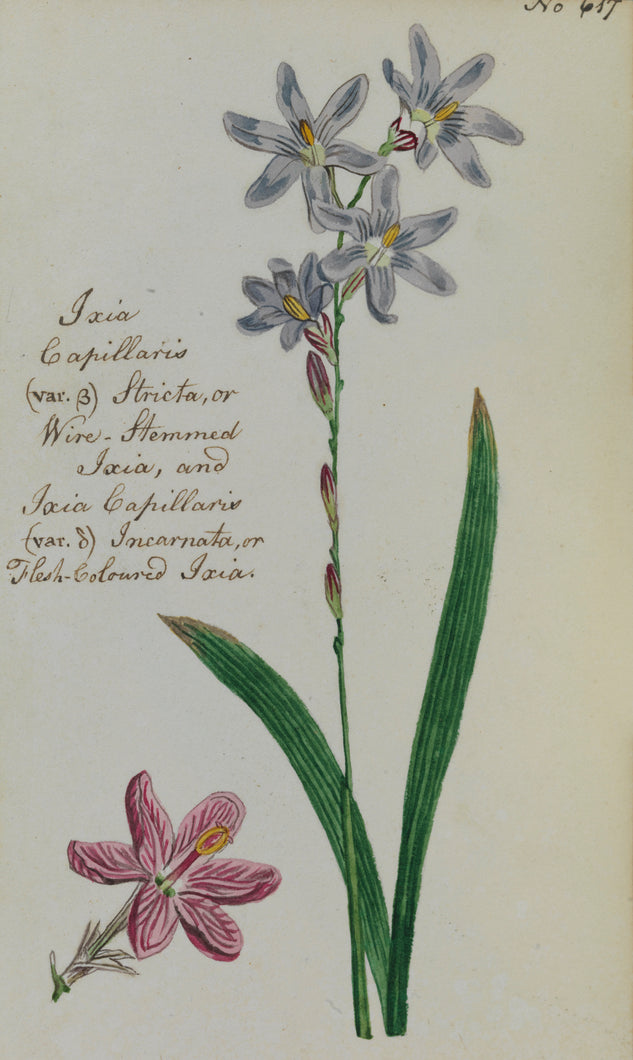 No 617
Ixia
Capillaris
(var. β) Stricta, or
Wire-Stemmed
Ixia, and
Ixia Capillaris
(var. δ) Incarnata, or
Flesh-Coloured Ixia.